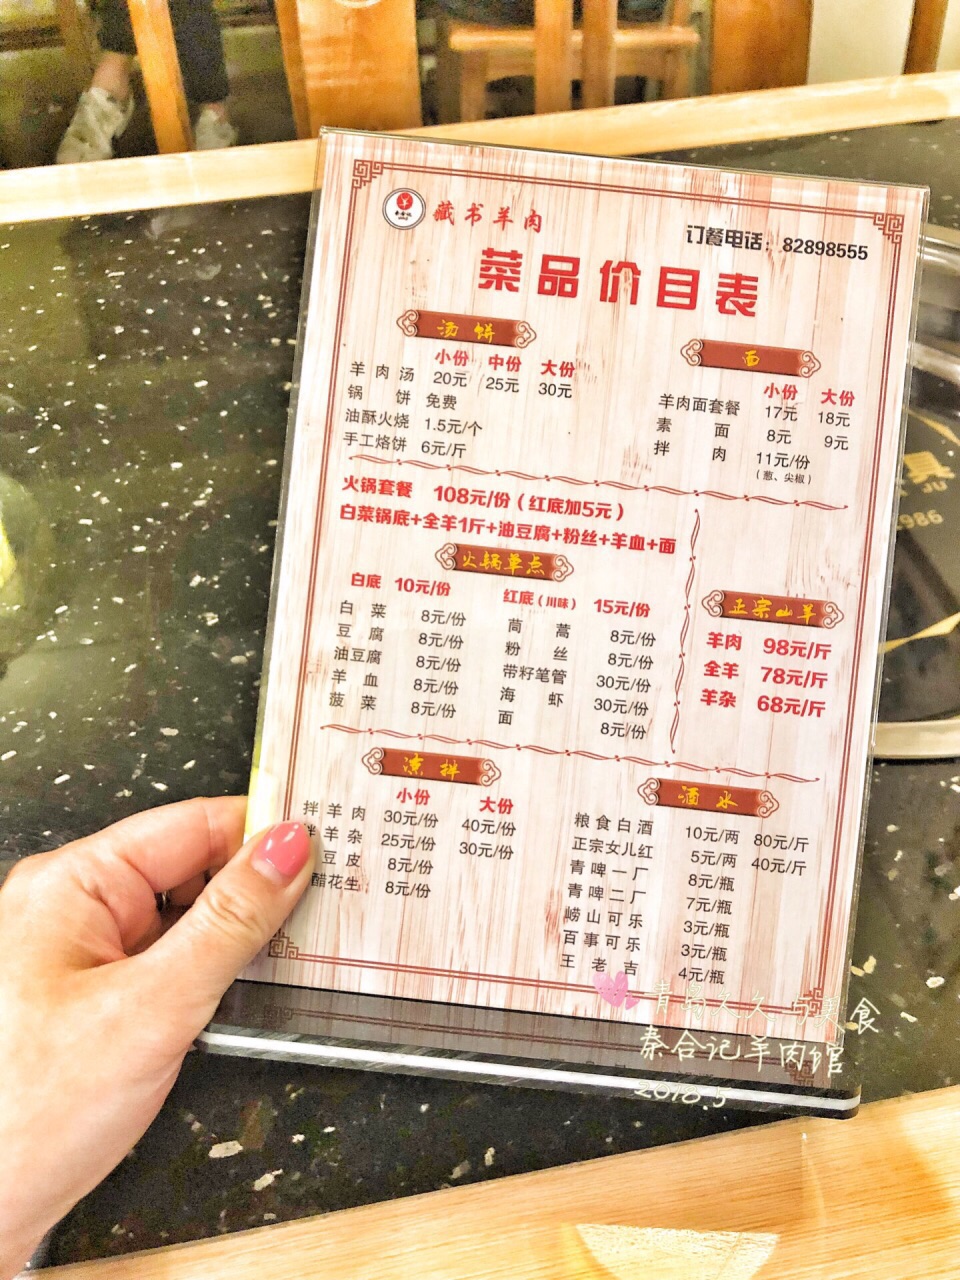 藏书羊肉
订餐电话：82898555
菜品价目表
汤饼
小份 中份 大份
羊肉汤 20元 25元 30元
锅饼 免费
油酥火烧 1.5元/个
手工烙饼 6元/斤
面
小份 大份
羊肉面套餐 17元 18元
素面 8元 9元
拌肉 11元/份
（葱、尖椒）
火锅套餐 108元/份（红底加5元）
白菜锅底+全羊1斤+油豆腐+粉丝+羊血+面
火锅单点
白底 10元/份
白菜 8元/份
豆腐 8元/份
油豆腐 8元/份
羊血 8元/份
菠菜 8元/份
红底（川味） 15元/份
茼蒿 8元/份
粉丝 8元/份
带籽笔管 30元/份
海虾 30元/份
面 8元/份
正宗山羊
羊肉 98元/斤
全羊 78元/斤
羊杂 68元/斤
凉拌
小份 大份
拌羊肉 30元/份 40元/份
拌羊杂 25元/份 30元/份
豆皮 8元/份
醋花生 8元/份
酒水
粮食白酒 10元/两 80元/斤
正宗女儿红 5元/两 40元/斤
青啤一厂 8元/瓶
青啤二厂 7元/瓶
崂山可乐 3元/瓶
百事可乐 3元/瓶
王老吉 4元/瓶
青岛久久与美食
秦合记羊肉馆
2018.5
真
JU
986